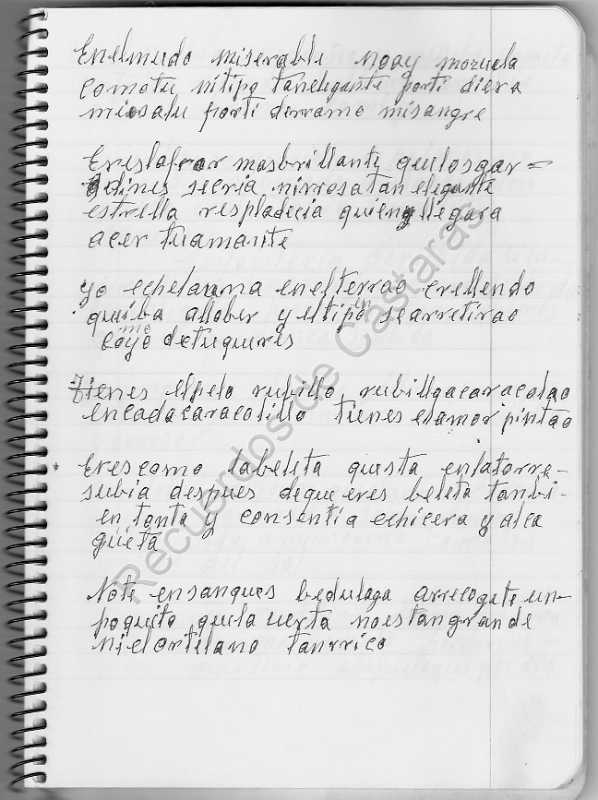 Enelmudo miserable noay mozuela
comotu nitipo tanelegante porti diera
misalu porti derramo misangre
Ereslaflor masbrillante quilosgar=
dines secria nirrosa tan elegante
estrella respladicia quien llegara
acer tuamante
yo echelauna enelterrao crellendo
quiba allober y eltiponi searretirao
me coyo detuqueres
Tienes elpelo rubillo rubilloacaracolao
encadacaracolillo tienes elamor pintao
Erescomo labelita questa enlatorre-
subia despues dequeeres belita tambi-
en tonta y consentia echicera y alca
güeta
Note ensanques bedulaga arrecogete un-
poquito quela uerta noestangrande
nielortilano tanrrico
Recuerdos de Castaras